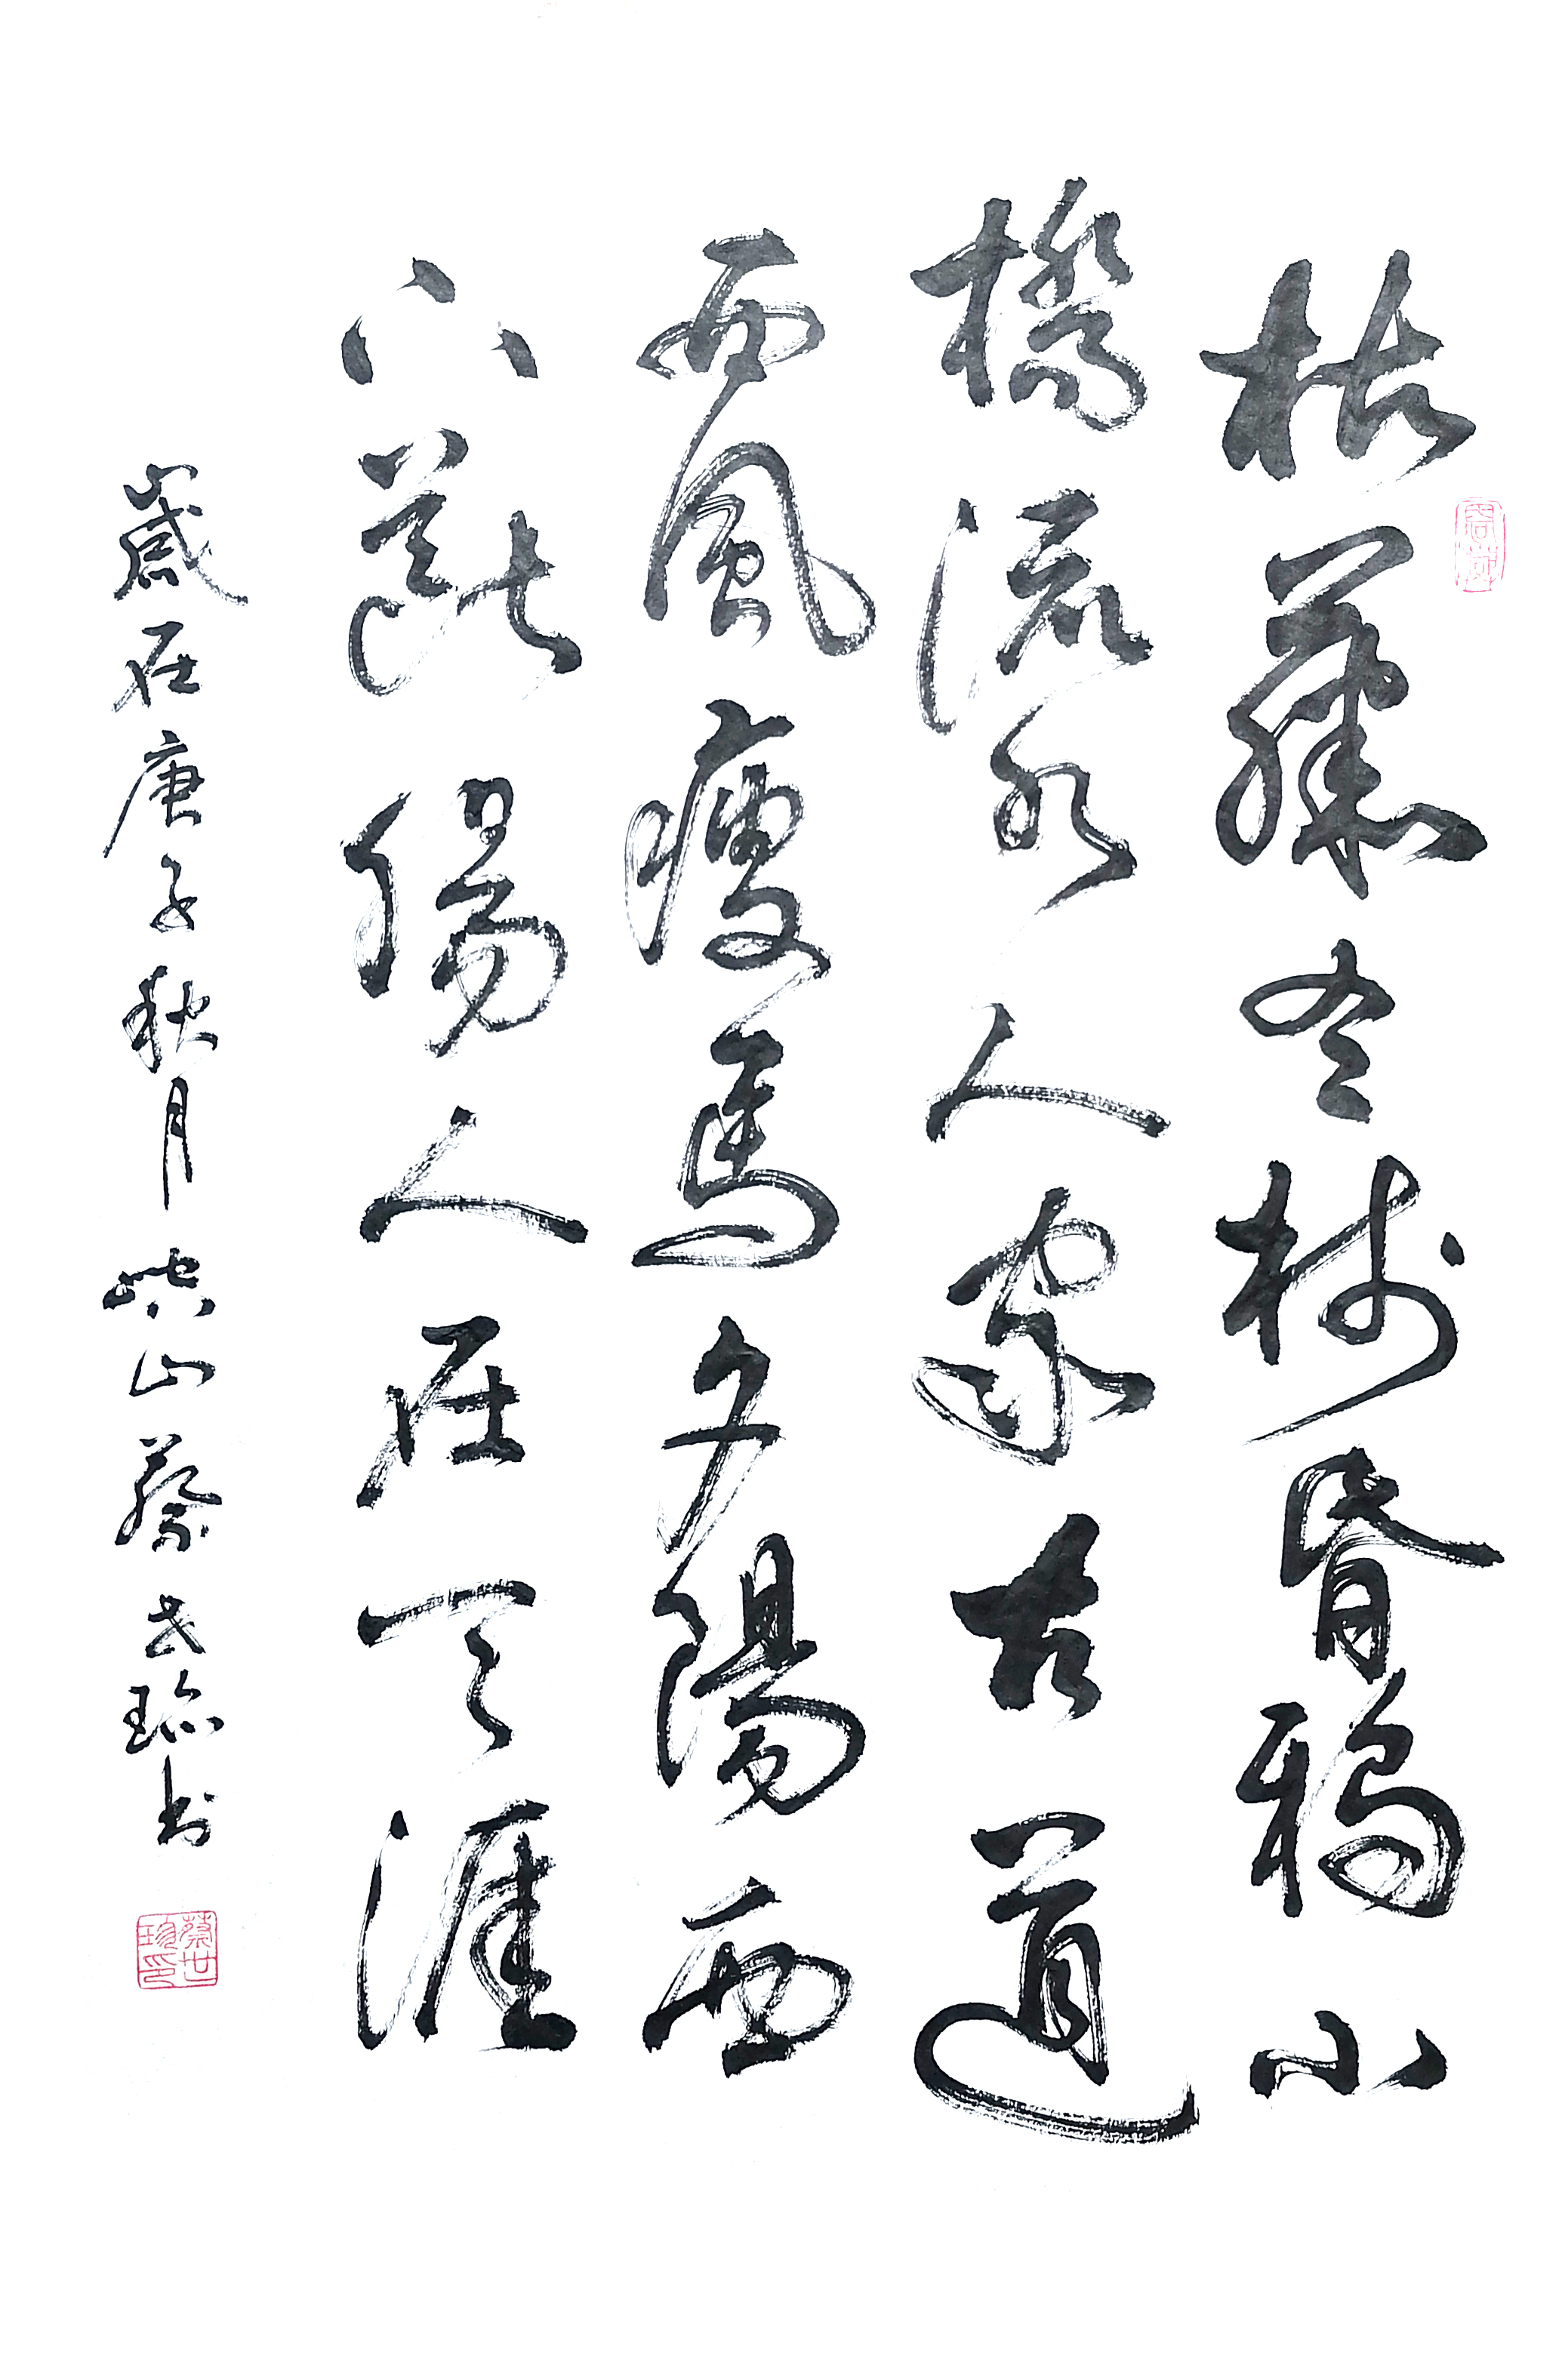 枯藤老樹昏鴉小
橋流水人家古道
西風瘦馬夕陽西
下斷腸人在天涯
歲在庚子秋月 山蔡世珍書
蔡世珍印